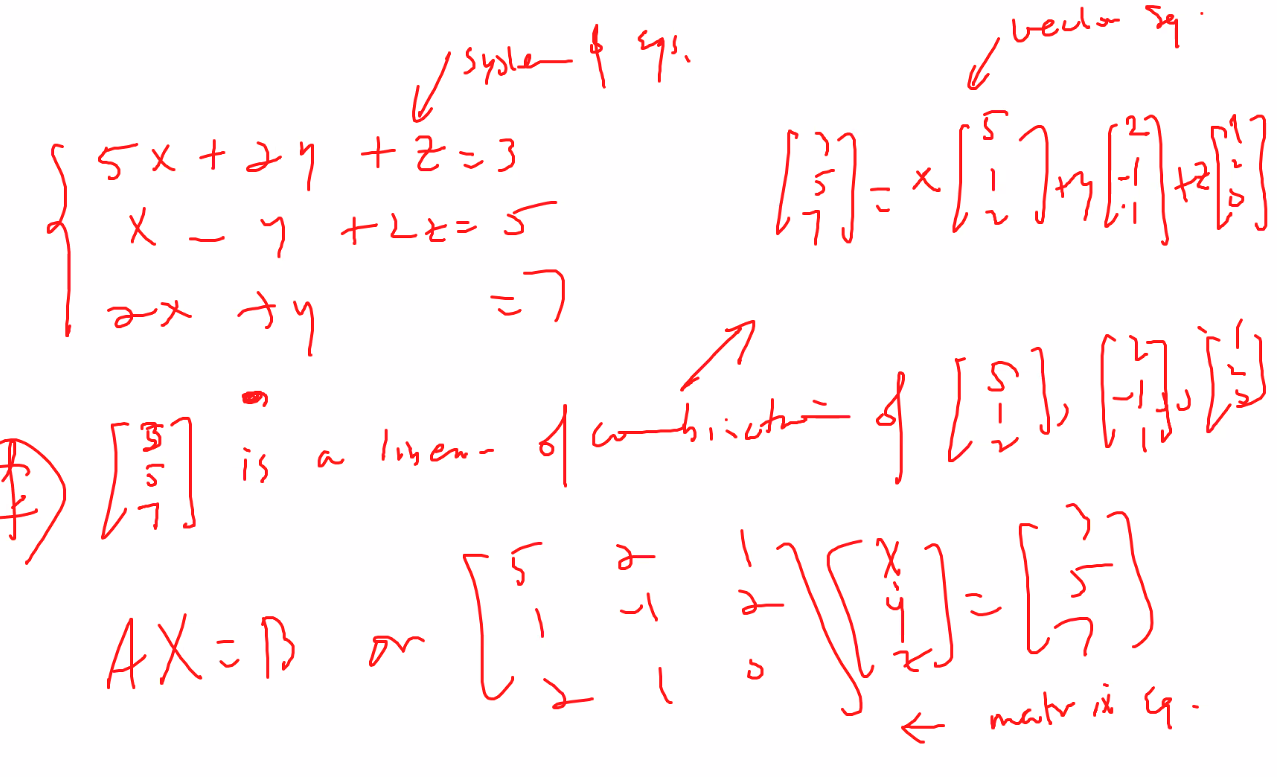 system of Eqs.
vector Eq.
5x + 2y + z = 3
x - y + 2z = 5
2x + y = 7
[3 5 7] = x [5 1 2] + y [2 -1 1] + z [1 2 0]
[3 5 7] is a linear of combination of [5 1 2], [2 -1 1], [1 2 0]
AX = B or [5 2 1
1 -1 2
2 1 0] [x y z] = [3 5 7]
← matrix Eq.